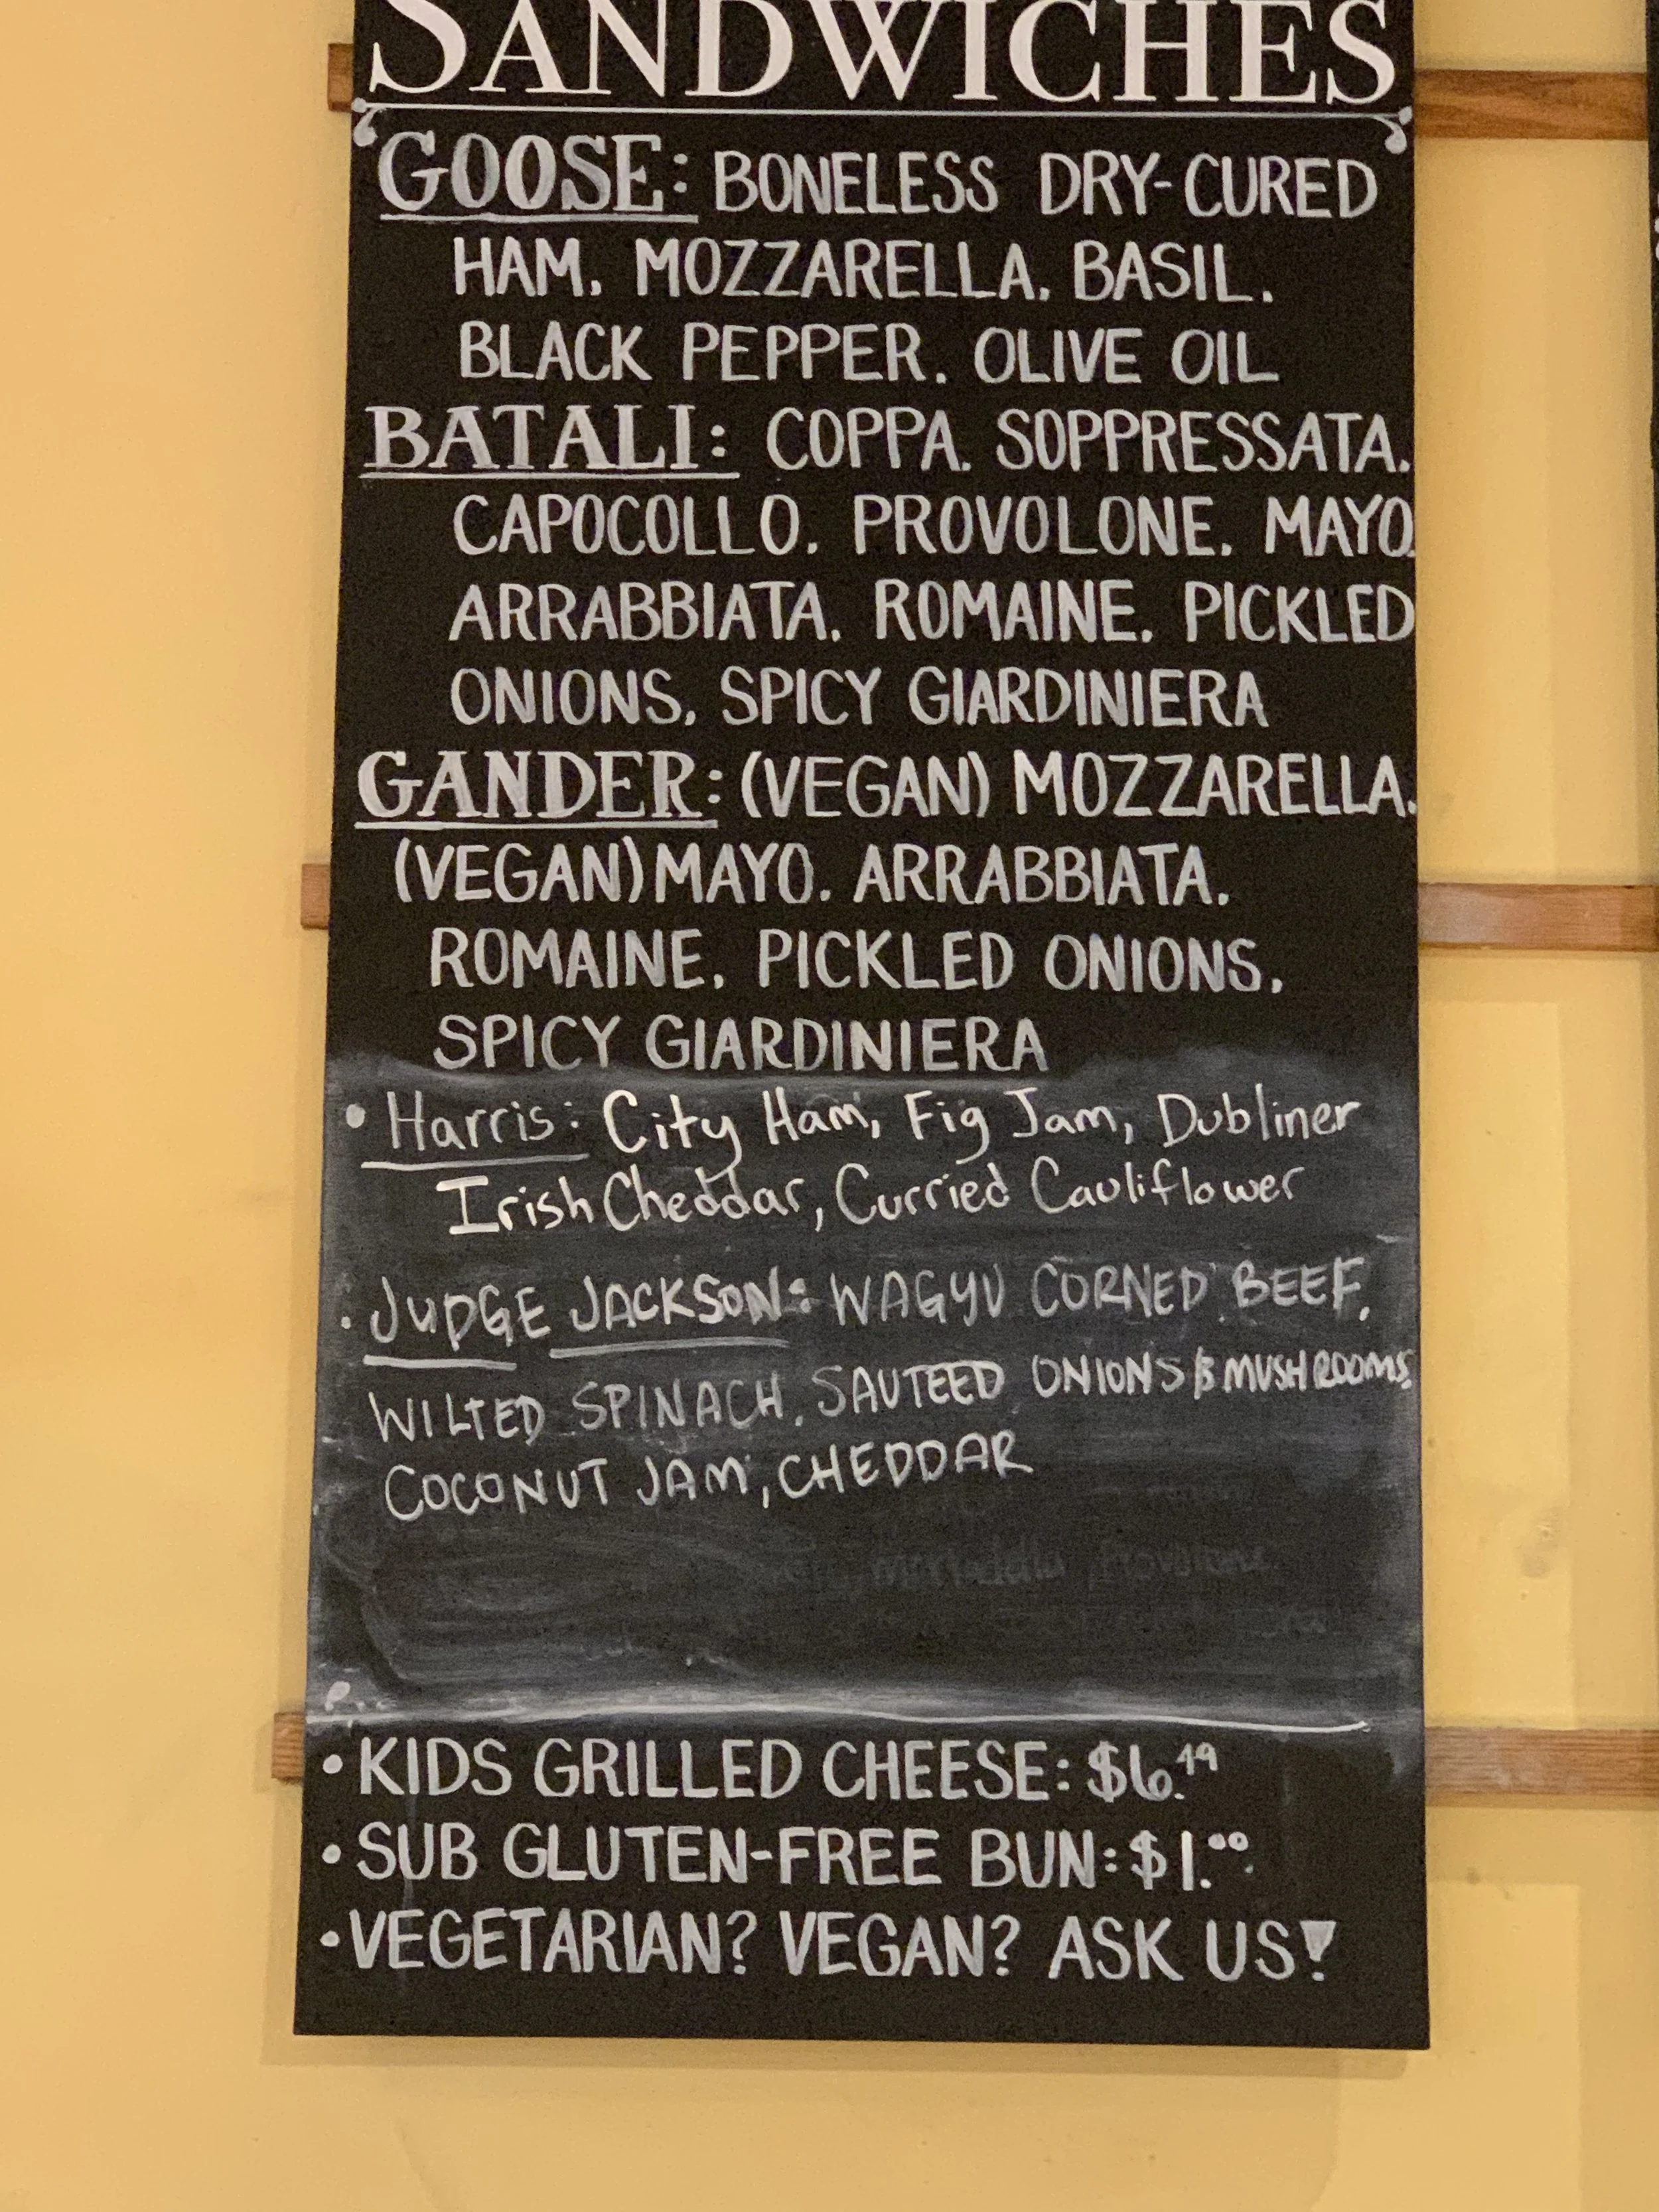 SANDWICHES
GOOSE: BONELESS DRY-CURED
HAM. MOZZARELLA. BASIL.
BLACK PEPPER. OLIVE OIL
BATALI: COPPA. SOPPRESSATA.
CAPOCOLLO. PROVOLONE. MAYO.
ARRABBIATA. ROMAINE. PICKLED
ONIONS. SPICY GIARDINIERA
GANDER: (VEGAN) MOZZARELLA.
(VEGAN) MAYO. ARRABBIATA.
ROMAINE. PICKLED ONIONS.
SPICY GIARDINIERA
• Harris: City Ham, Fig Jam, Dubliner
Irish Cheddar, Curried Cauliflower
• JUDGE JACKSON: WAGYU CORNED BEEF,
WILTED SPINACH, SAUTEED ONIONS & MUSHROOMS,
COCONUT JAM, CHEDDAR
• KIDS GRILLED CHEESE: $6.49
• SUB GLUTEN-FREE BUN: $1.00
• VEGETARIAN? VEGAN? ASK US!